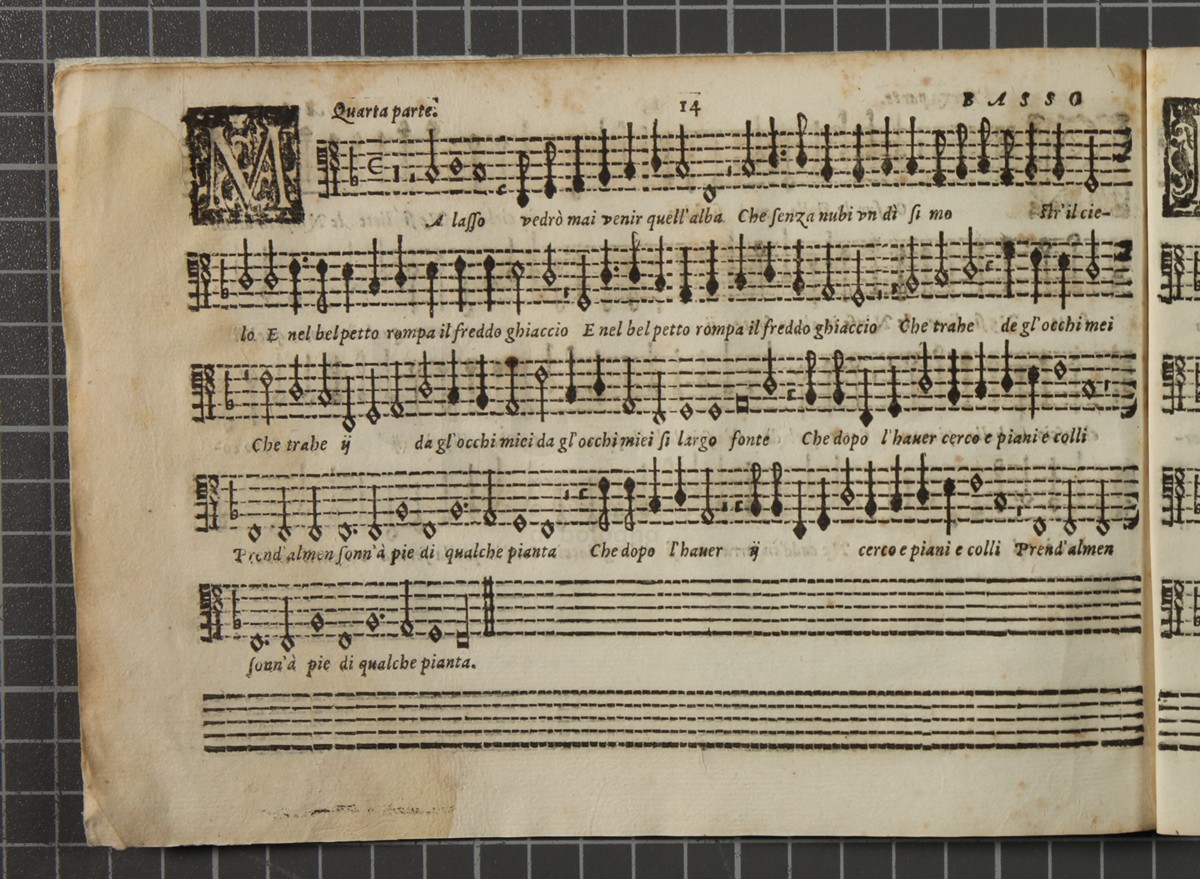 Quarta parte. 14 BASSO
MA lasso vedrò mai venir quell'alba Che senza nubi vn dì si mo str'il cie-
lo E nel bel petto rompa il freddo ghiaccio E nel bel petto rompa il freddo ghiaccio Che trahe de gl'occhi mei
Che trahe ij da gl'occhi miei da gl'occhi miei si largo fonte Che dopo l'hauer cerco e piani e colli
Prend'almen sonn'à pie di qualche pianta Che dopo l'hauer ij cerco e piani e colli Prend'almen
sonn'à pie di qualche pianta.